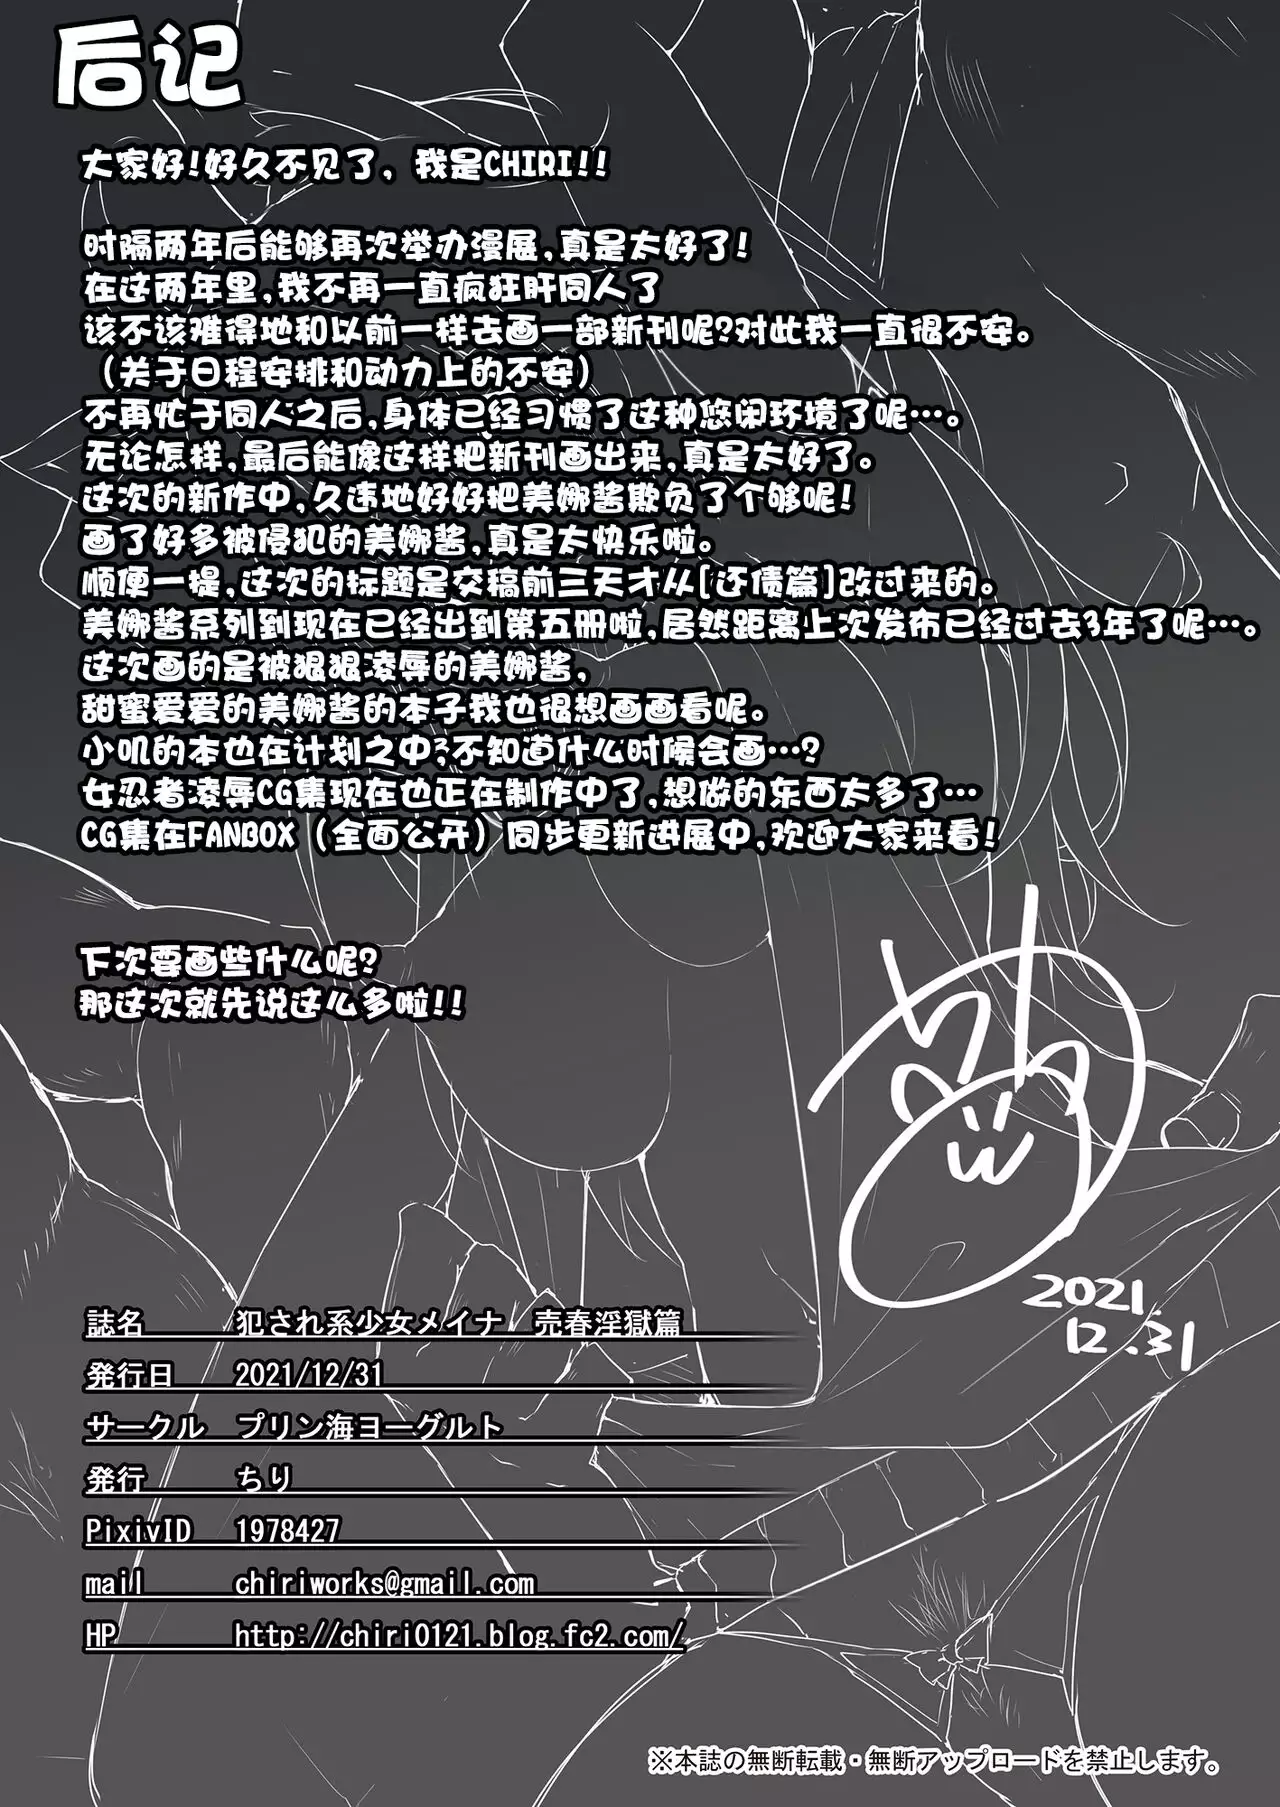 后记
大家好!好久不见了，我是CHIRI!!
时隔两年后能够再次举办漫展,真是太好了!
在这两年里,我不再一直疯狂肝同人了
该不该难得地和以前一样去画一部新刊呢?对此我一直很不安。
（关于日程安排和动力上的不安）
不再忙于同人之后,身体已经习惯了这种悠闲环境了呢…。
无论怎样,最后能像这样把新刊画出来,真是太好了。
这次的新作中,久违地好好把美娜酱欺负了个够呢!
画了好多被侵犯的美娜酱,真是太快乐啦。
顺便一提,这次的标题是交稿前三天才从[还债篇]改过来的。
美娜酱系列到现在已经出到第五册啦,居然距离上次发布已经过去3年了呢…。
这次画的是被狠狠凌辱的美娜酱,
甜蜜爱爱的美娜酱的本子我也很想画画看呢。
小叽的本也在计划之中,不知道什么时候会画…?
女忍者凌辱CG集现在也正在制作中了,想做的东西太多了…
CG集在FANBOX（全面公开）同步更新进展中,欢迎大家来看!
下次要画些什么呢?
那这次就先说这么多啦!!
2021.
12.31
誌名 犯され系少女メイナ 売春淫獄篇
発行日 2021/12/31
サークル プリン海ヨーグルト
発行 ちり
PixivID 1978427
mail chiriworks@gmail.com
HP http://chiri0121.blog.fc2.com/
※本誌の無断転載・無断アップロードを禁止します。